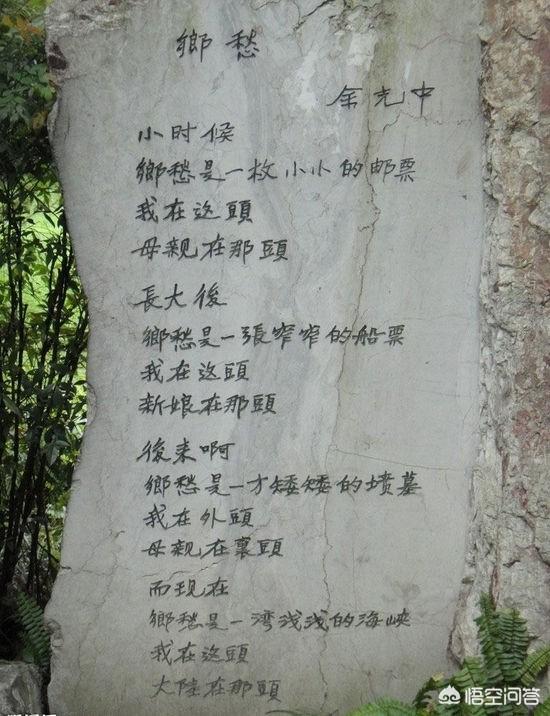 鄉愁
余光中
小时候
鄉愁是一枚小小的邮票
我在这頭
母亲在那頭
長大後
鄉愁是一張窄窄的船票
我在这頭
新娘在那頭
後来啊
鄉愁是一方矮矮的墳墓
我在外頭
母亲在裏頭
而现在
鄉愁是一湾浅浅的海峡
我在这頭
大陸在那頭
悟空问答